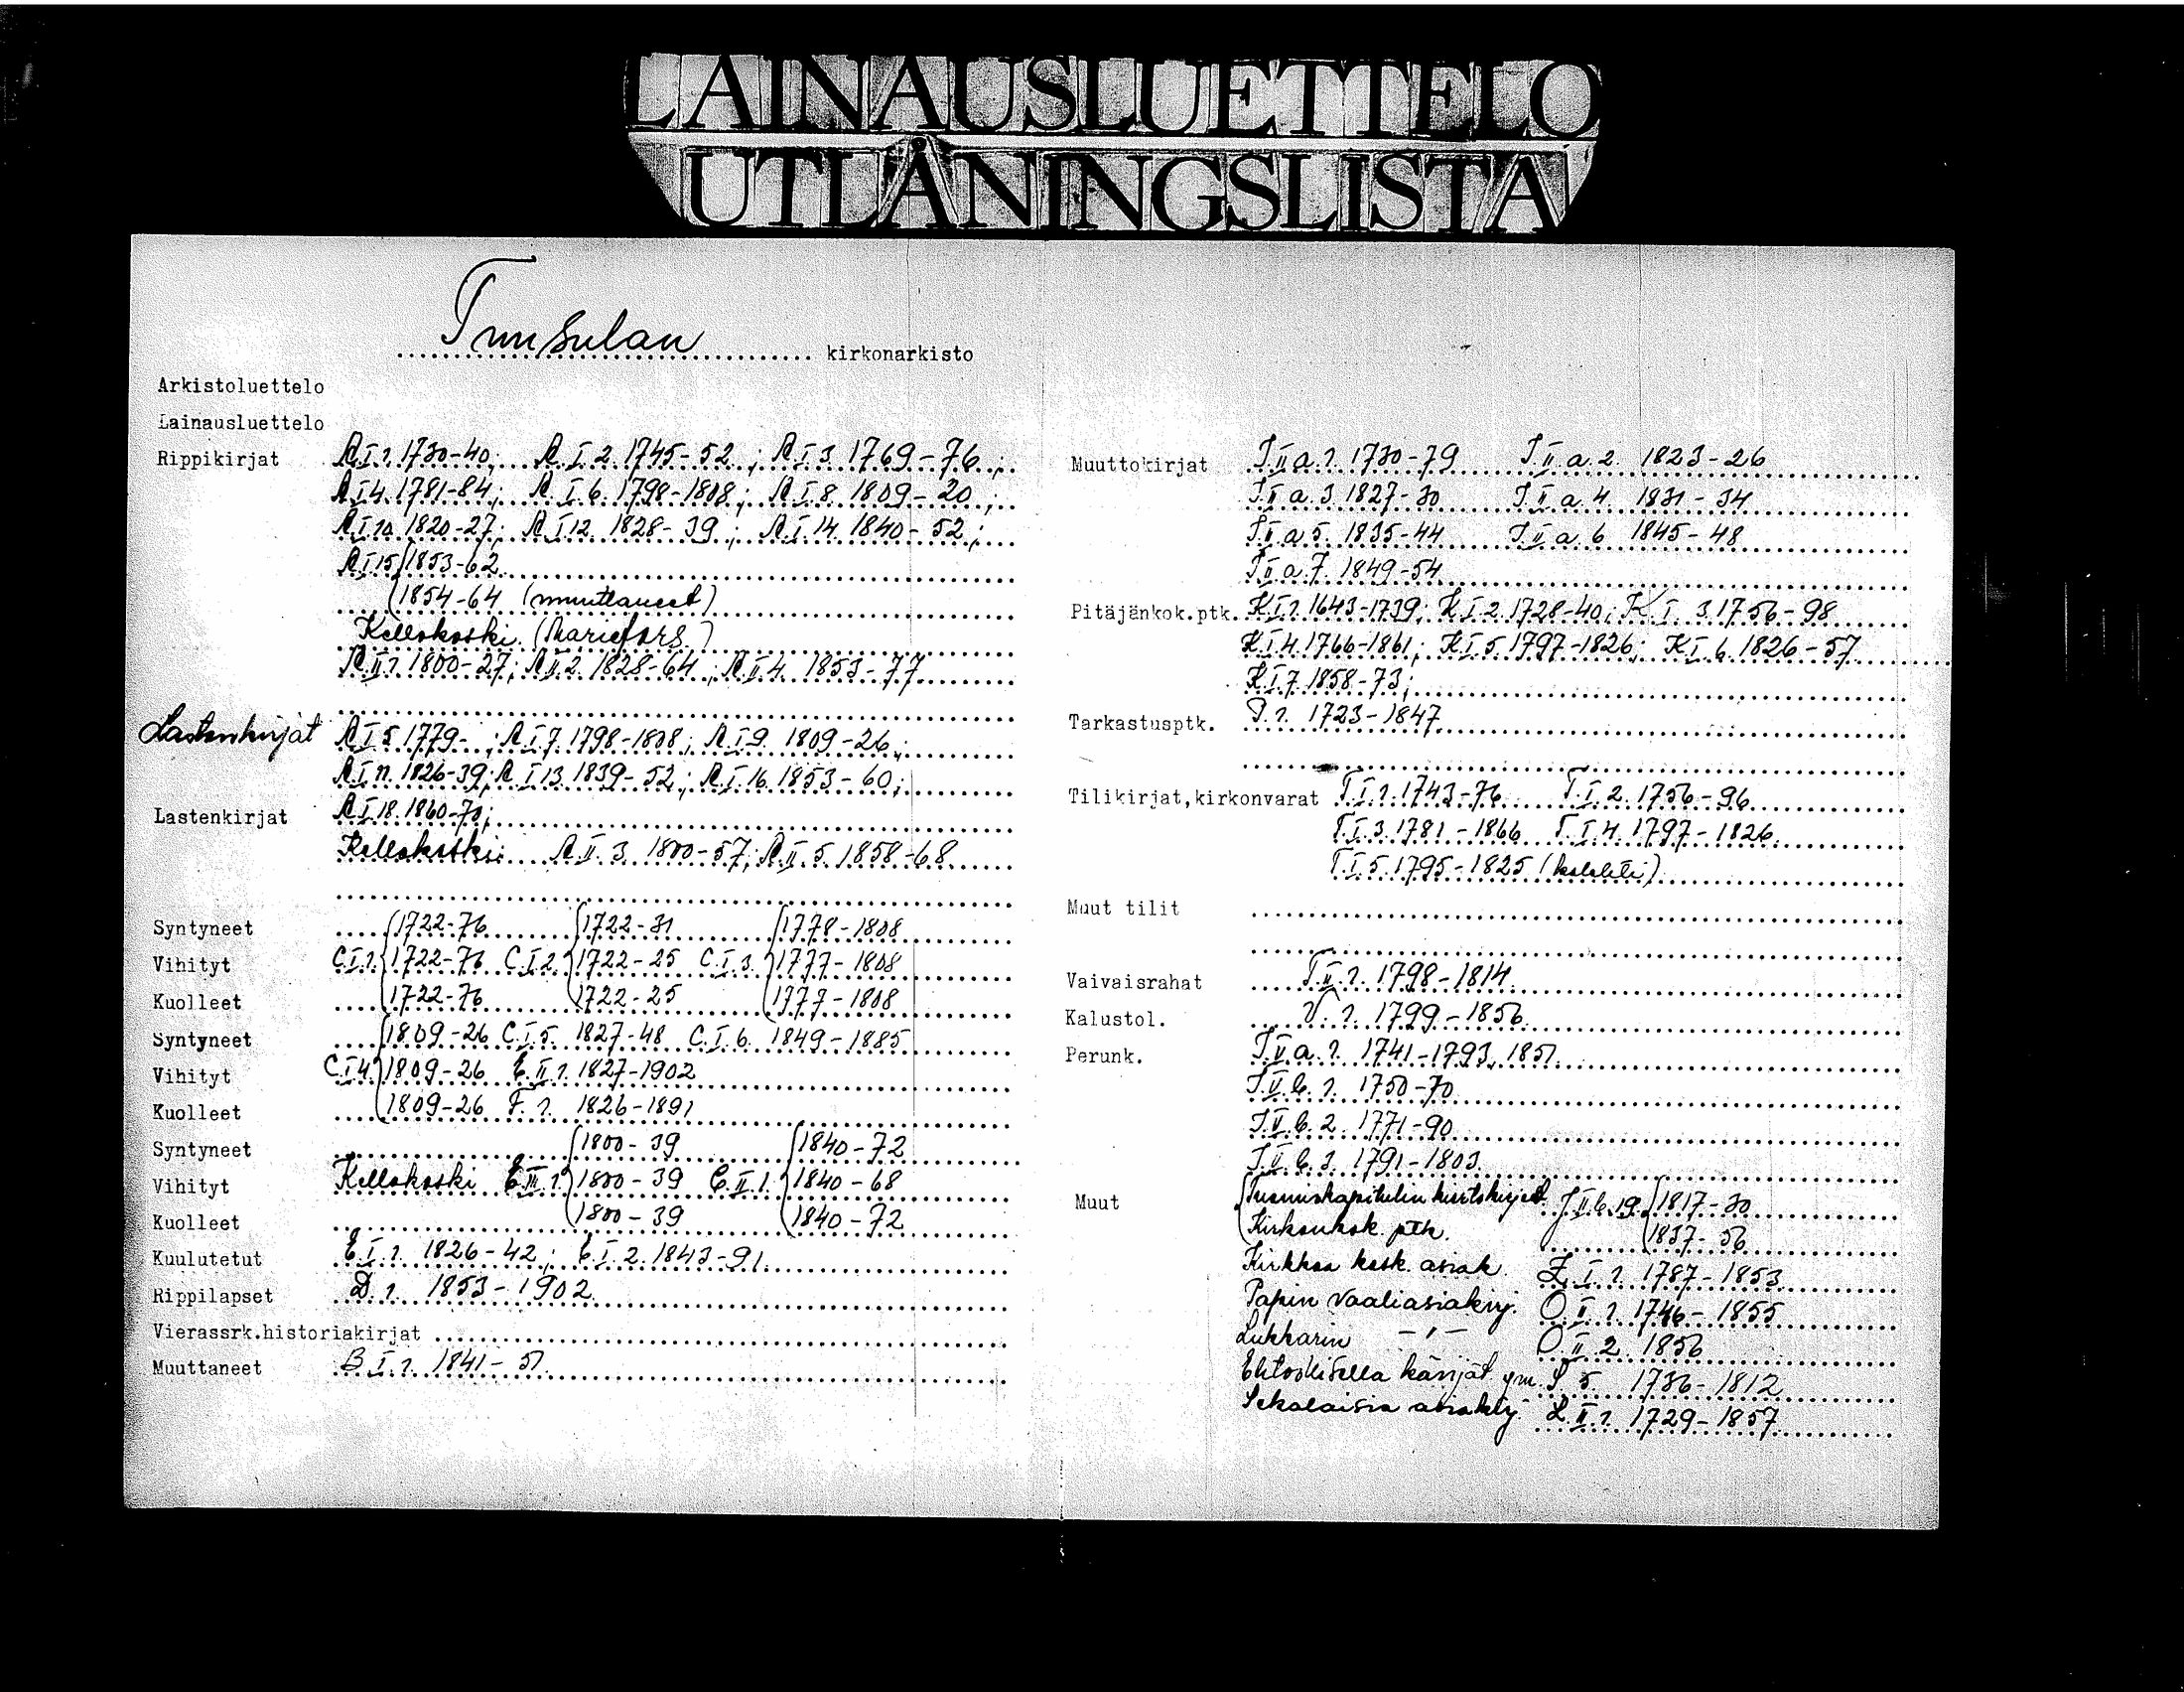 LAINAUSLUETTELO
UTLÅNINGSLISTA
Tuusulan kirkonarkisto
Arkistoluettelo
Lainausluettelo
Rippikirjat A I 1. 1730-40; A I 2. 1745-52; A I 3. 1769-76;
A I 4. 1781-84; A I 6. 1798-1808; A I 8. 1809-20;
A I 10. 1820-27; A I 12. 1828-39; A I 14. 1840-52;
A I 15 1853-62
1854-64 (muuttaneet)
Kellokoski (Mariefors)
A II 1. 1800-27; A II 2. 1828-64; A II 4. 1853-77
Lastenkirjat A I 5. 1779- ; A I 7. 1798-1808; A I 9. 1809-26;
A I 11. 1826-39; A I 13. 1839-52; A I 16. 1853-60;
Lastenkirjat A I 18. 1860-70;
Kellokoski: A II 3. 1800-57; A II 5. 1858-68
Syntyneet 1722-76 1722-31 1778-1808
Vihityt C I 1. 1722-76 C I 2. 1722-25 C I 3. 1777-1808
Kuolleet 1722-76 1722-25 1777-1808
Syntyneet 1809-26 C I 5. 1827-48 C I 6. 1849-1885
Vihityt C I 4. 1809-26 E II 1. 1827-1902
Kuolleet 1809-26 F. 1. 1826-1891
Syntyneet 1800-39 1840-72
Vihityt Kellokoski 1800-39 1840-68
Kuolleet 1800-39 1840-72
Kuulutetut E I 1. 1826-42; E I 2. 1843-91
Rippilapset D. 1. 1853-1902
Vierassrk.historiakirjat
Muuttaneet B I 1. 1841-51
Muuttokirjat J II a 1. 1730-79 J II a 2. 1823-26
J II a 3. 1827-30 J II a 4. 1831-34
J II a 5. 1835-44 J II a 6 1845-48
J II a 7. 1849-54
Pitäjänkok.ptk. K I 1. 1643-1739; K I 2. 1728-40; K I 3. 1756-98
K I 4. 1766-1861; K I 5. 1797-1826; K I 6. 1826-57
K I 7. 1858-73;
Tarkastusptk. 1723-1847
Tilikirjat,kirkonvarat T I 1. 1743-76 T I 2. 1756-96
T I 3. 1781-1866 T I 4. 1797-1826
T I 5. 1795-1825
Muut tilit
Vaivaisrahat T II 1. 1798-1814
Kalustol. V. 1. 1799-1856
Perunk. J V a. 1. 1741-1793, 1851
J V b. 1. 1750-70
J V b. 2. 1771-90
J V b. 3. 1791-1803
Muut Tuomiokapitulin kiertokirjeet 1817-30
Kirkonkok. ptk. 1837-56
Kirkkoa kosk. asiak. 1787-1853
Papin vaaliasiakirj. O II 1. 1746-1855
Lukkarin -"- O II 2. 1856
1736-1812
Sekalaisia asiakirj. 1729-1857